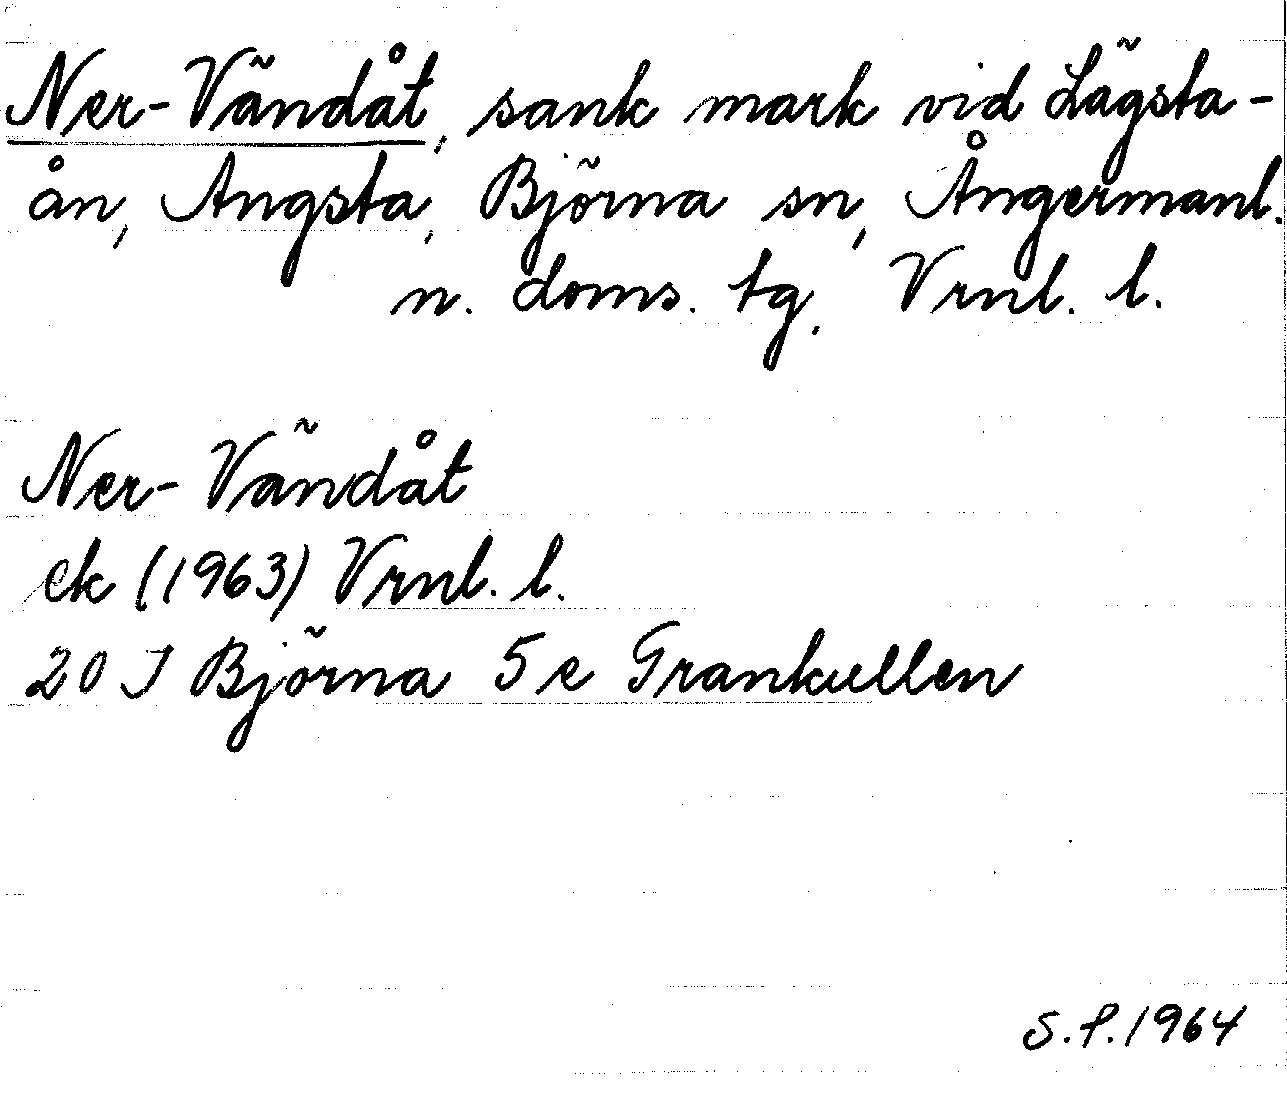 Ner-Vändåt, sank mark vid Lägsta-
ån, Angsta, Björna sn, Ångermanl.
n. doms. tg. Vrnl. l.
Ner-Vändåt
ek (1963) Vrnl. l.
20 J Björna 5 e Grankullen
S.P. 1964